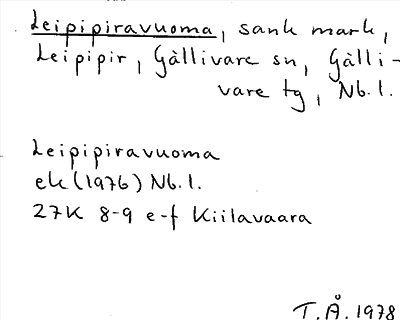 Leipipiravuoma, sank mark,
Leipipir, Gällivare sn, Gälli-
vare tg, Nb.l.
Leipipiravuoma
ek (1976) Nb.l.
27K 8-9 e-f Kiilavaara
T.Å. 1978